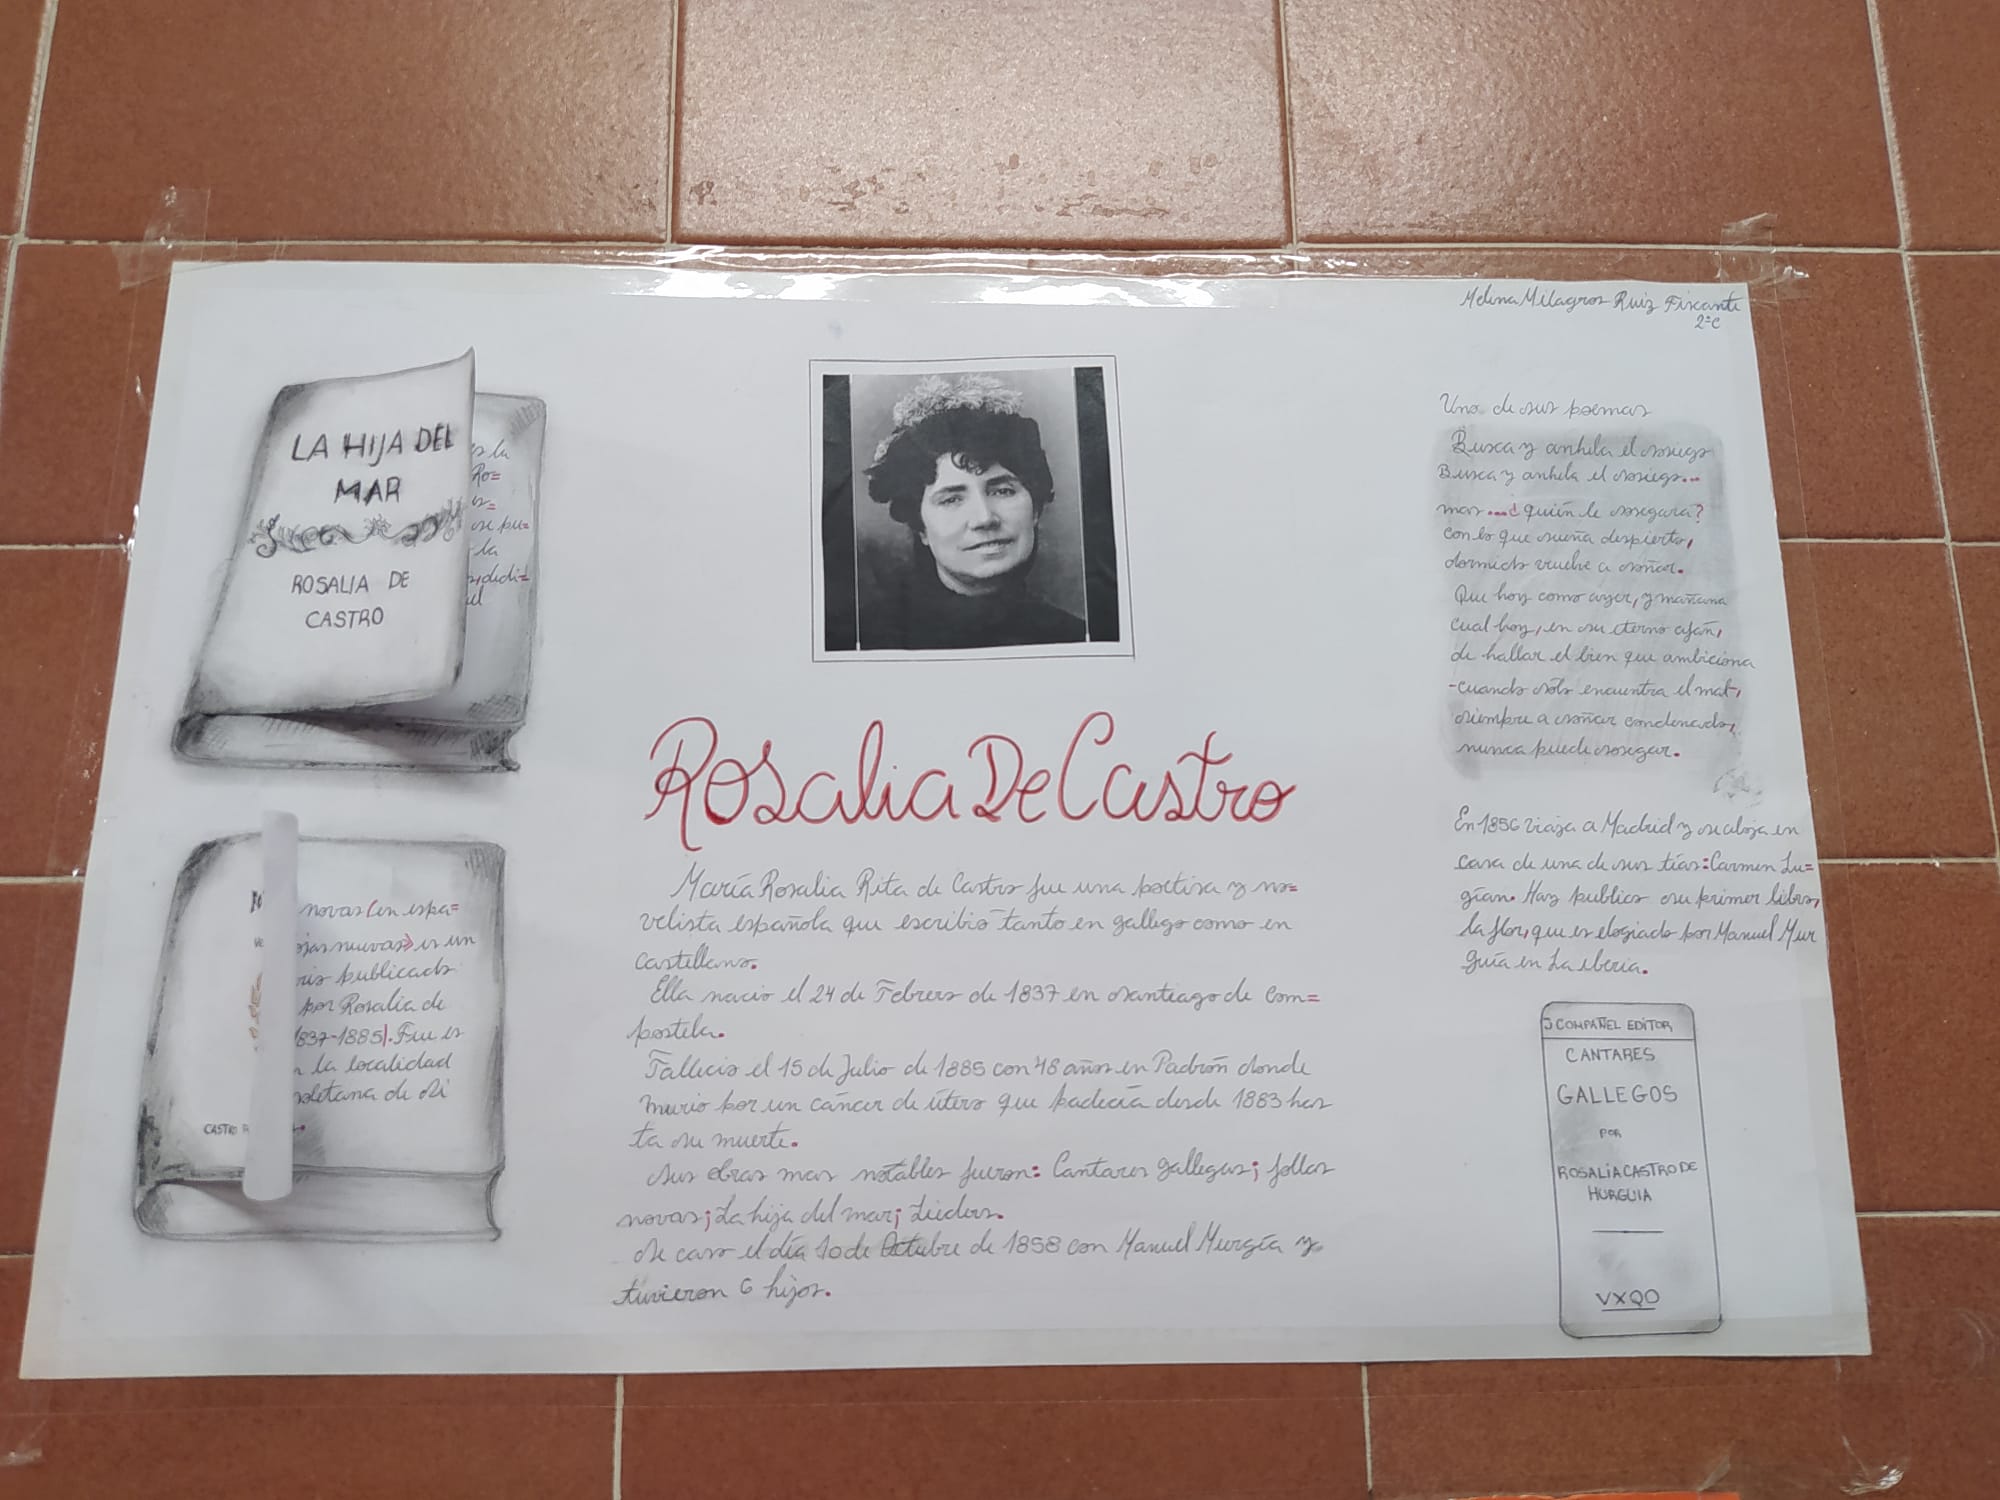 Melina Milagros Ruiz Fixcante
2ºC
LA HIJA DEL
MAR
ROSALIA DE
CASTRO
es la
Ro=
es=
se pu=
la
dedi=
novas (en espa=
ojas nuevas» es un
rio publicado
por Rosalia de
1837-1885). Fue es
la localidad
soletana de Si
CASTRO
Rosalia De Castro
María Rosalia Rita de Castro fue una poetisa y no=
velista española que escribio tanto en gallego como en
castellano.
Ella nacio el 24 de Febrero de 1837 en Santiago de Com=
postela.
Fallecio el 15 de Julio de 1885 con 48 años en Padrón donde
murio por un cáncer de útero que padecía desde 1883 has
ta su muerte.
Sus obras mas notables fueron: Cantares gallegos; follas
novas; La hija del mar; Lieders.
Se caso el día 10 de Octubre de 1858 con Manuel Murgía y
tuvieron 6 hijos.
Uno de sus poemas
Busca y anhela el sosiego
Busca y anhela el sosiego...
mas...¿quién le sosegara?
con lo que sueña despierto,
dormido vuelve a soñar.
Que hoy como ayer, y mañana
cual hoy, en su eterno afán,
de hallar el bien que ambiciona
-cuando sólo encuentra el mal-,
siempre a soñar condenado,
nunca puede sosegar.
En 1856 viaja a Madrid y se aloja en
casa de una de sus tías: Carmen Lu=
gían. Hay publico su primer libro,
la flor, que es elogiado por Manuel Mur
guía en La iberia.
J COMPAÑEL EDITOR
CANTARES
GALLEGOS
POR
ROSALÍA CASTRO DE
HURGUIA
VXQO